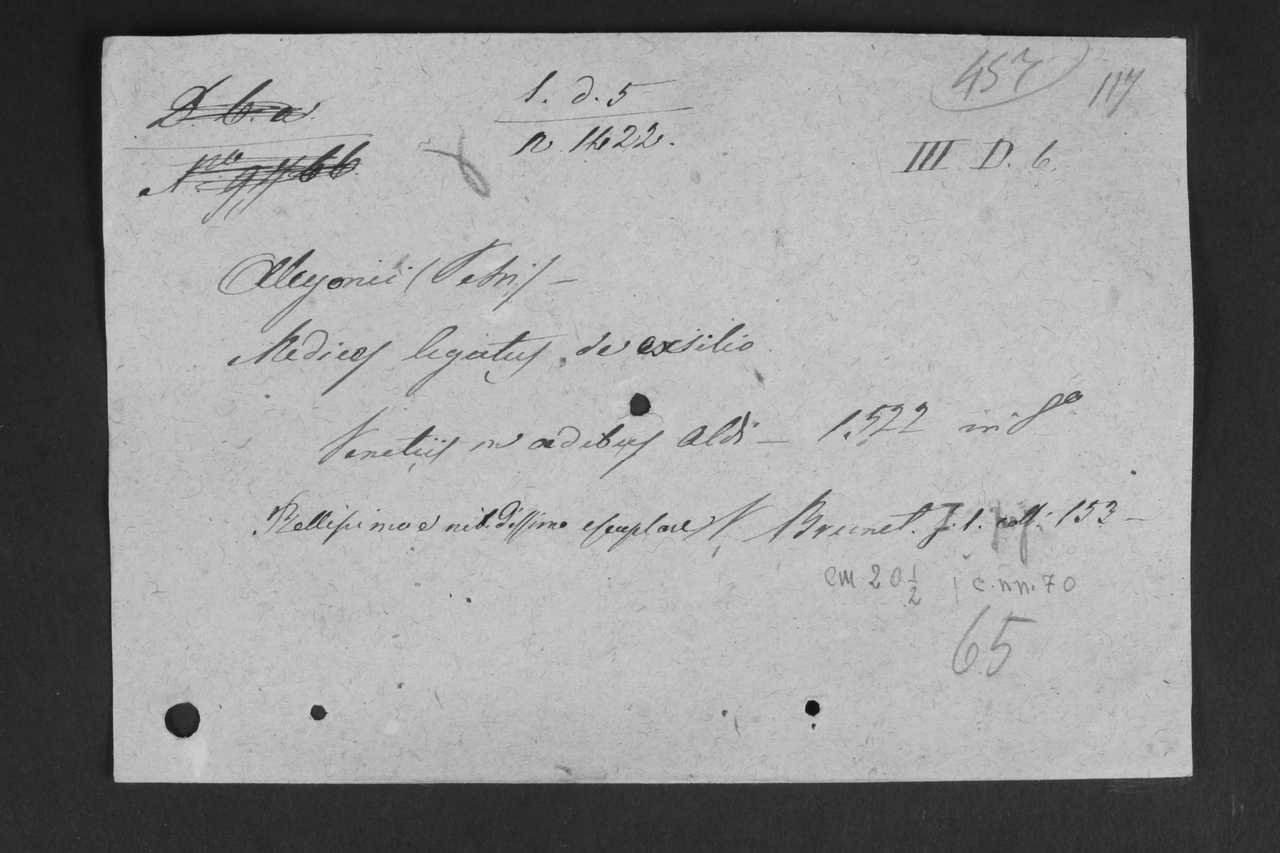 D. b. a.
1. d. 5
457
117
n 1422.
III D. 6.
Alcyonii (Petri) —
Medices legatus, de exsilio
Venetiis in ædibus Aldi — 1522 in 8º
Bellissimo e nitidissimo esemplare V. Brunet. T. 1. coll: 153 —
cm 20 1/2 c.nn. 70
65